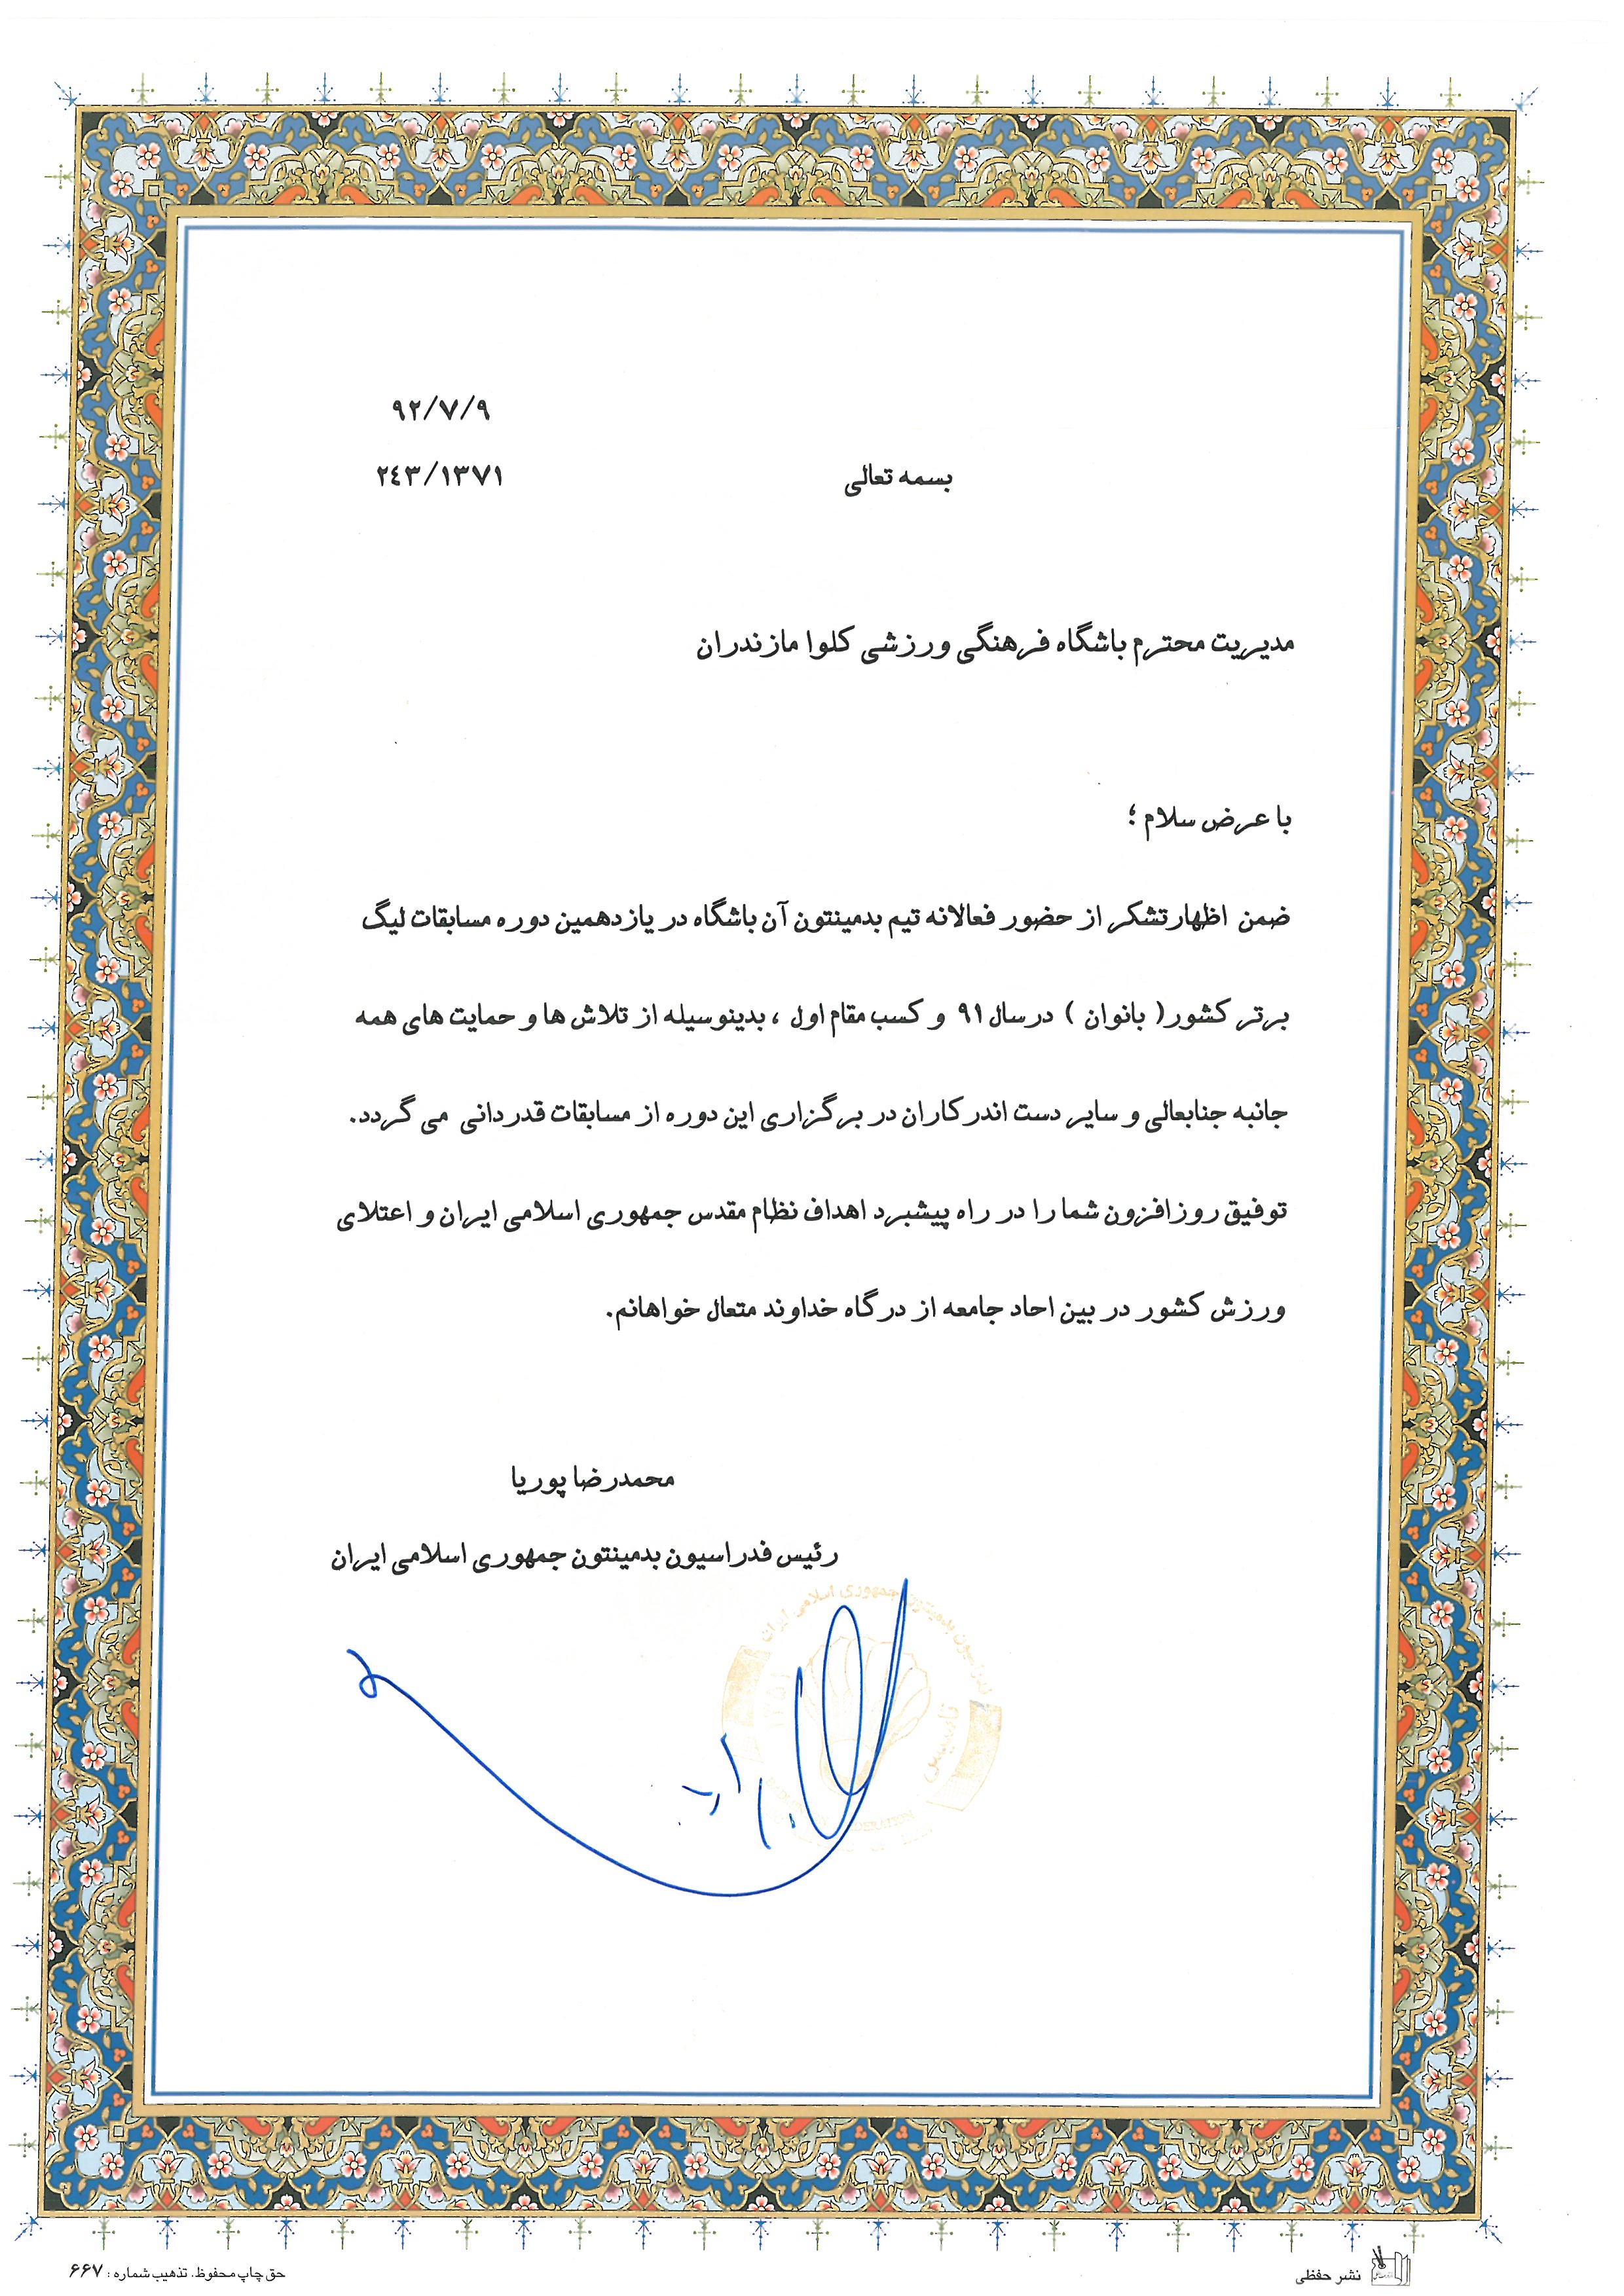 ۹۲/۷/۹
۲٤۳/۱۳۷۱
بسمه تعالی
مدیریت محترم باشگاه فرهنگی ورزشی کلوا مازندران
با عرض سلام ؛
ضمن اظهارتشکر از حضور فعالانه تیم بدمینتون آن باشگاه در یازدهمین دوره مسابقات لیگ
برتر کشور( بانوان ) درسال ۹۱ و کسب مقام اول ، بدینوسیله از تلاش ها و حمایت های همه
جانبه جنابعالی و سایر دست اندرکاران در برگزاری این دوره از مسابقات قدردانی می گردد.
توفیق روزافزون شما را در راه پیشبرد اهداف نظام مقدس جمهوری اسلامی ایران و اعتلای
ورزش کشور در بین احاد جامعه از درگاه خداوند متعال خواهانم.
محمدرضا پوریا
رئیس فدراسیون بدمینتون جمهوری اسلامی ایران
بدمینتون جمهوری اسلامی ایران
تاسیس
نشر حفظی
حق چاپ محفوظ. تذهیب شماره : ۶۶۷